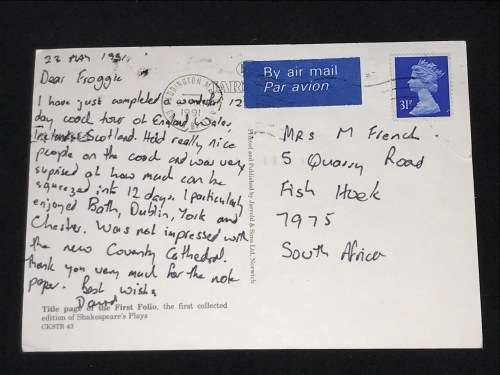 23 MAY 1991.
Dear Froggie
I have just completed a wonderful 12
day coach tour of England, Wales,
Ireland & Scotland. Had really nice
people on the coach and was very
suprised at how much can be
squeezed into 12 days. I particularly
enjoyed Bath, Dublin, York and
Chester. Was not impressed with
the new Coventry Cathedral.
Thank you very much for the note
paper. Best wishes
David
Title page of the First Folio, the first collected
edition of Shakespeare's Plays
CKSTR 43
Printed and Published by Jarrold & Sons Ltd, Norwich
PADDINGTON
1991
By air mail
Par avion
31P
Mrs M French.
5 Quarry Road
Fish Hoek
7975
South Africa